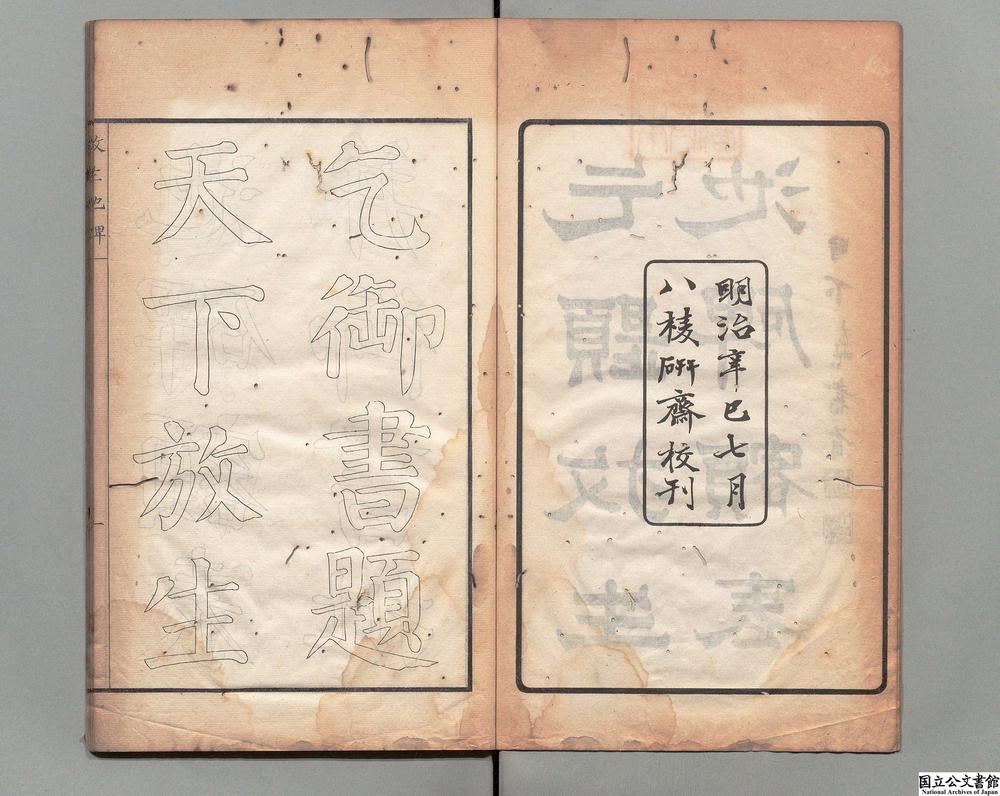 明治辛巳七月
八棱硏齋校刊
乞御書題
天下放生
放生池碑
一
国立公文書館
National Archives of Japan